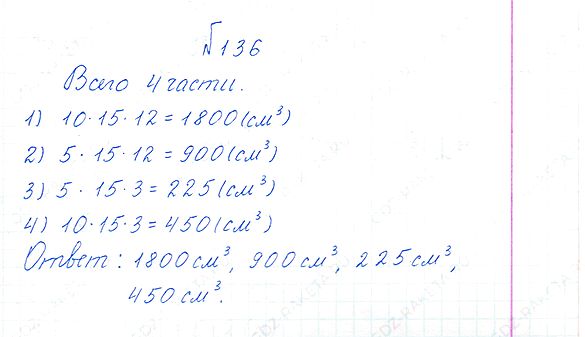 №136
Всего 4 части.
1) 10·15·12=1800(см³)
2) 5·15·12=900(см³)
3) 5·15·3=225(см³)
4) 10·15·3=450(см³)
Ответ: 1800см³, 900см³, 225см³,
450см³.